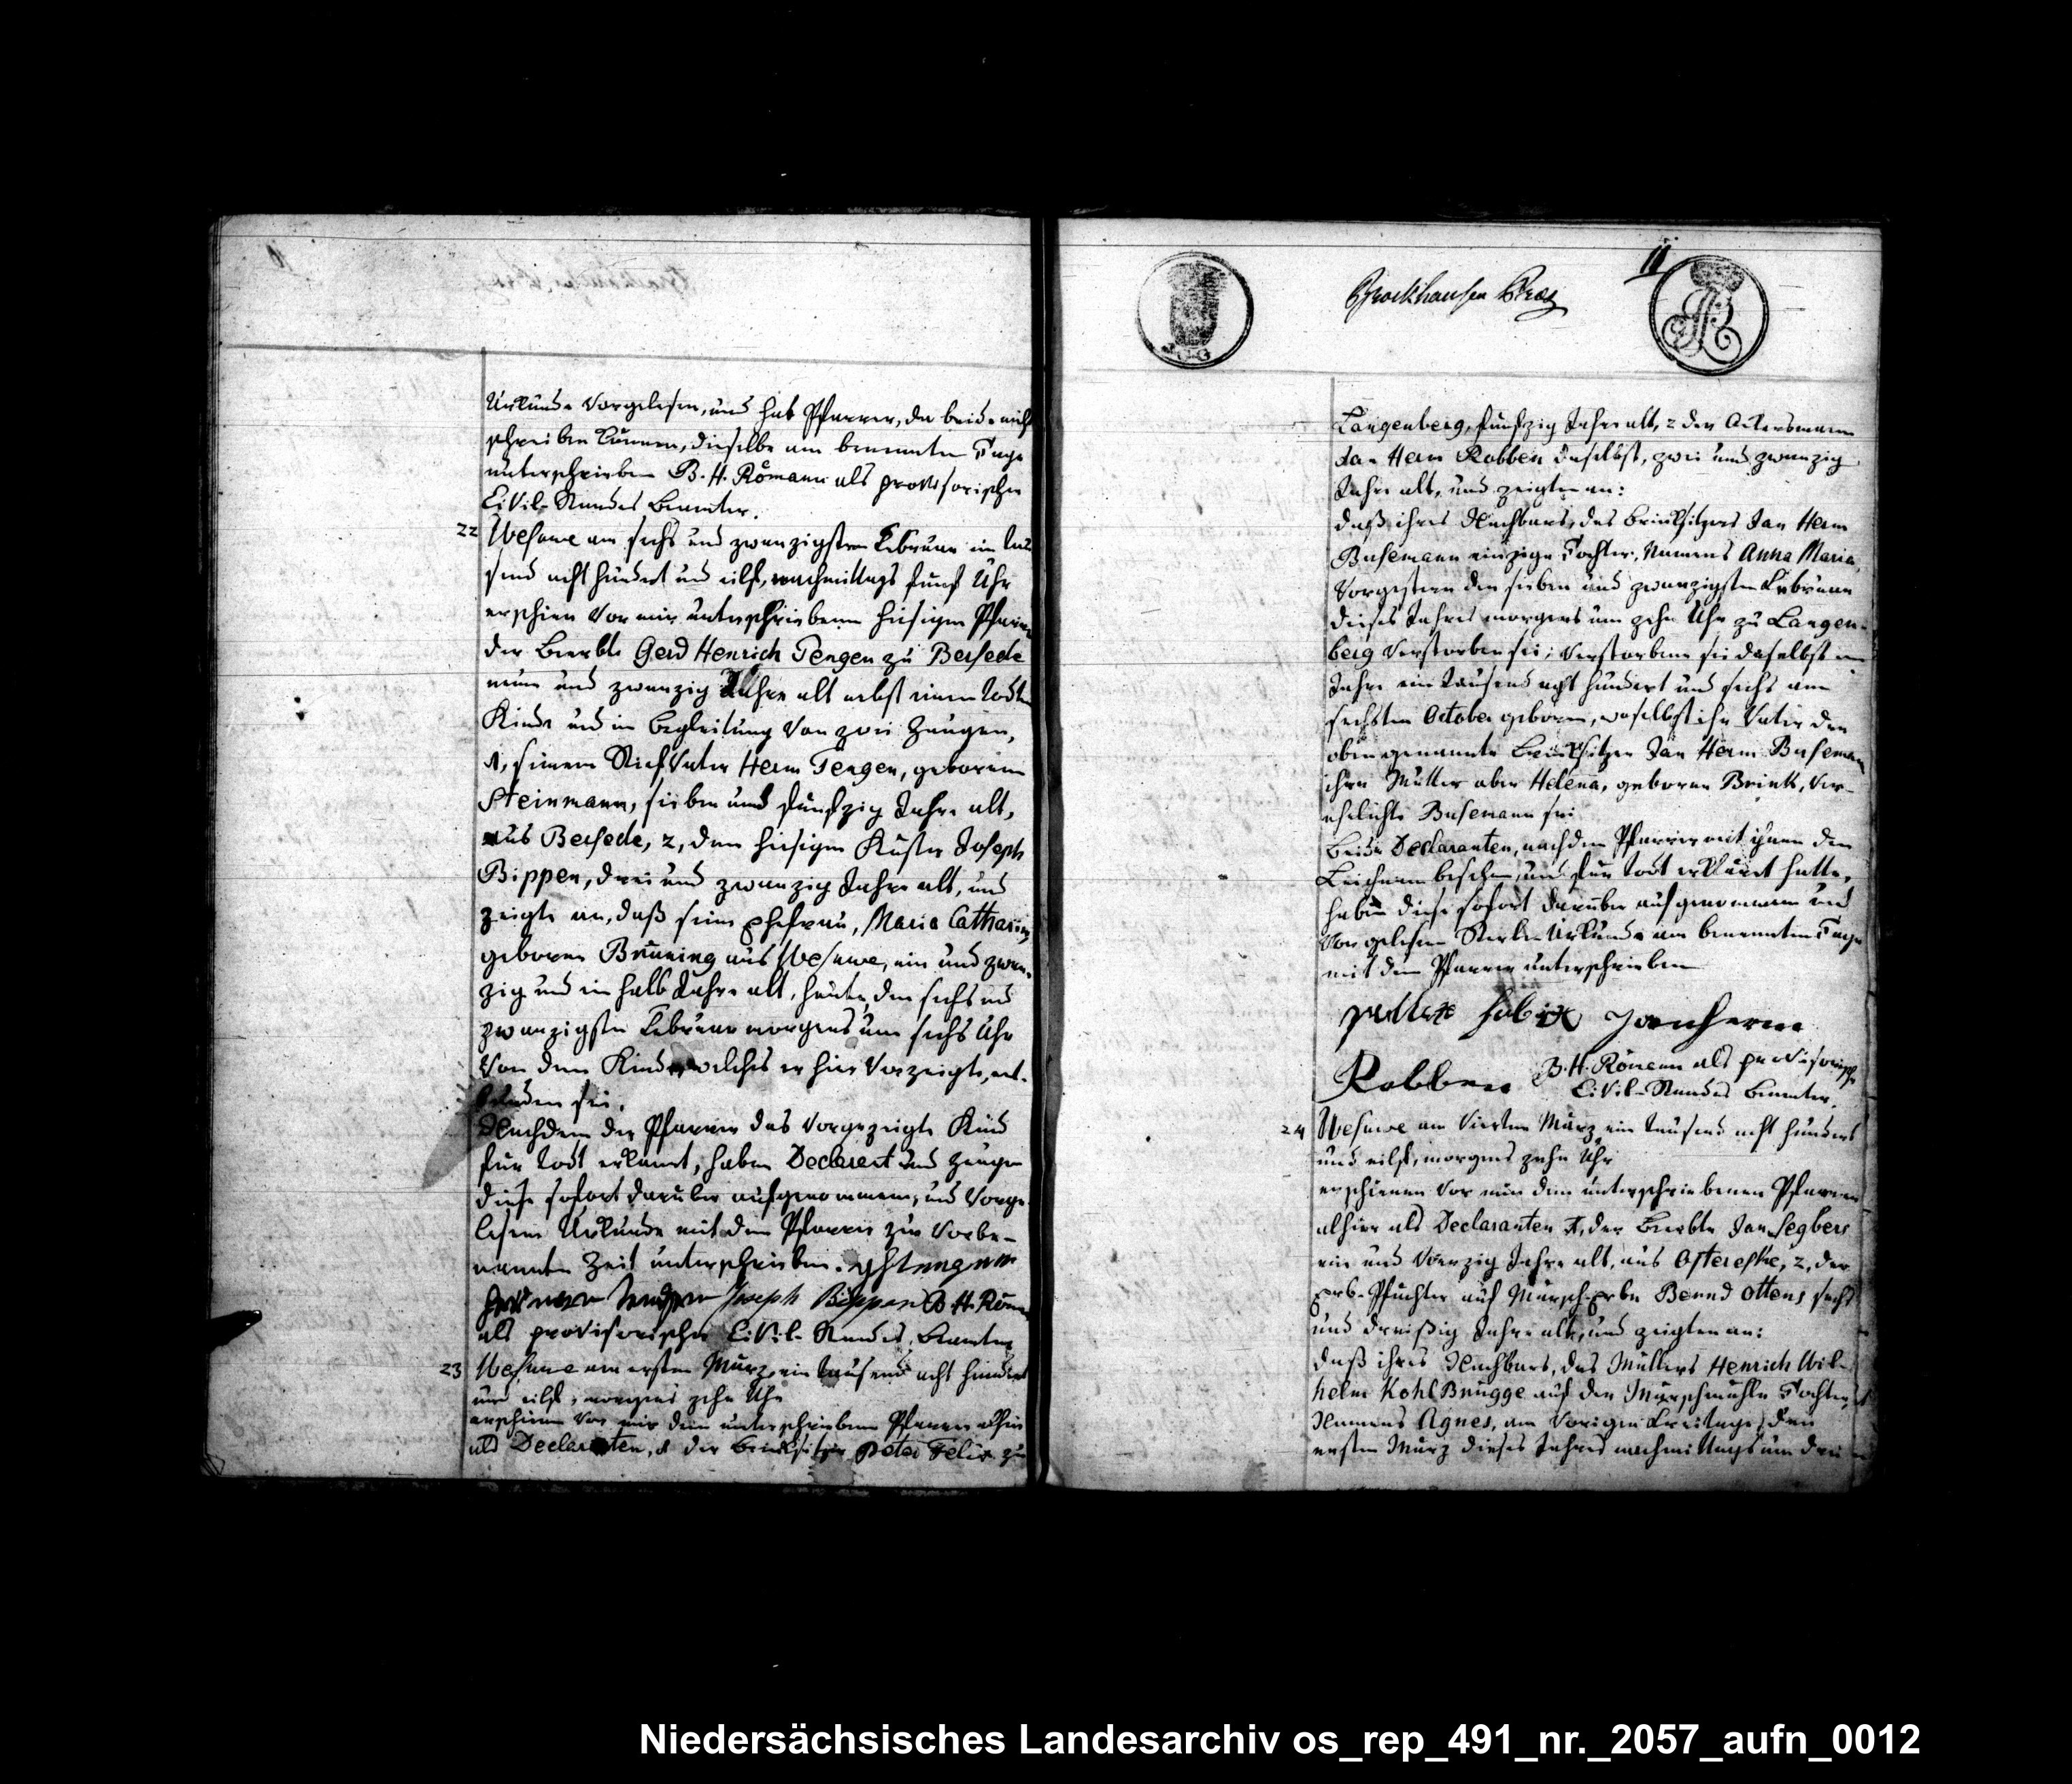 10
Urkunde vorgelesen, und hab Pfarrer, da beide nicht
schreiben können, dieselbe am benannten Tage
unterschrieben B. H. Römann als provisorischer
Civil-Standes Beamter.
22 Wesuwe am sechs und zwanzigsten Februar ein tau
send acht hundert und eilf, nachmittags fünf Uhr
erschien vor mir unterschriebenen hiesigen Pfarrer
der Beerbte Gerd Henrich Tengen zu Berssede
neun und zwanzig Jahre alt nebst einem todten
Kinde und in Begleitung von zwei Zeugen,
1, seinem Stiefvater Herm Tengen, geboren
Steinmann, sieben und fünfzig Jahre alt,
aus Berssede, 2, dem hiesigen Küster Joseph
Bippen, drei und zwanzig Jahre alt, und
zeigte an, daß seine Ehefrau, Maria Catharina
geboren Brüning aus Wesuwe, ein und zwan-
zig und ein halb Jahre alt, heute den sechs und
zwanzigsten Februar morgens um sechs Uhr
von dem Kinde welches er hier vorzeigte, ent-
bunden sei.
Nachdem der Pfarrer das vorgezeigte Kind
für todt erkannt, haben Declarant und Zeugen
diese sofort darüber aufgenommene, und vorge
lesene Urkunde mit dem Pfarrer zur vorbe-
nannten Zeit unterschrieben. G H tengen
Herman Joseph Bippen B. H. Röman
als provisorischer Civil-Standes Beamter
23 Wesuwe am ersten März ein tausend acht hundert
und eilf, morgens zehn Uhr
erschienen vor mir dem unterschriebenen Pfarrer alhier
als Declaranten, 1 der Brinksitzer Peter Felix zu
11
Brockhausen
Langenberg, fünfzig Jahre alt, 2 der Ackersmann
Jan Herm Robben daselbst, zwei und zwanzig
Jahre alt, und zeigten an:
daß ihres Nachbars, des Brinksitzers Jan Herm
Busemann einzige Tochter, Namens Anna Maria,
vorgestern den sieben und zwanzigsten Februar
dieses Jahres morgens um zehn Uhr zu Langen-
berg verstorben sei; Verstorbene sei daselbst im
Jahre ein tausend acht hundert und sechs am
sechsten October geboren, woselbst ihr Vater der
oben genannte Brinksitzer Jan Herm Buseman
ihre Mutter aber Helena, geboren Brink, ver-
ehelichte Busemann sei.
Beide Declaranten, nachdem Pfarrer mit ihnen den
Leichnam besehen, und für todt erklärt hatte,
haben diese sofort darüber aufgenommene und
vorgelesene Sterbe Urkunde am benannten Tage
mit dem Pfarrer unterschrieben
felix Janherm
Robben B. H. Römann als provisorischer
Civil-Standes Beamter.
24 Wesuwe am vierten März ein tausend acht hundert
und eilf, morgens zehn Uhr
erschienen vor mir dem unterschriebenen Pfarrer
alhier als Declaranten 1, der Beerbte Jan Segbers
ein und vierzig Jahre alt, aus 2, der
Erb-Pächter auf Mersch-Erbe Bernd Ottens sechs
und dreißig Jahre alt, und zeigten an:
daß ihres Nachbars, des Müllers Henrich Wil-
helm Kohl Brügge auf der Merschmühle Tochter,
Namens Agnes, am vorigen Freitage, den
ersten März dieses Jahres nachmittags um drei
Niedersächsisches Landesarchiv os_rep_491_nr._2057_aufn_0012